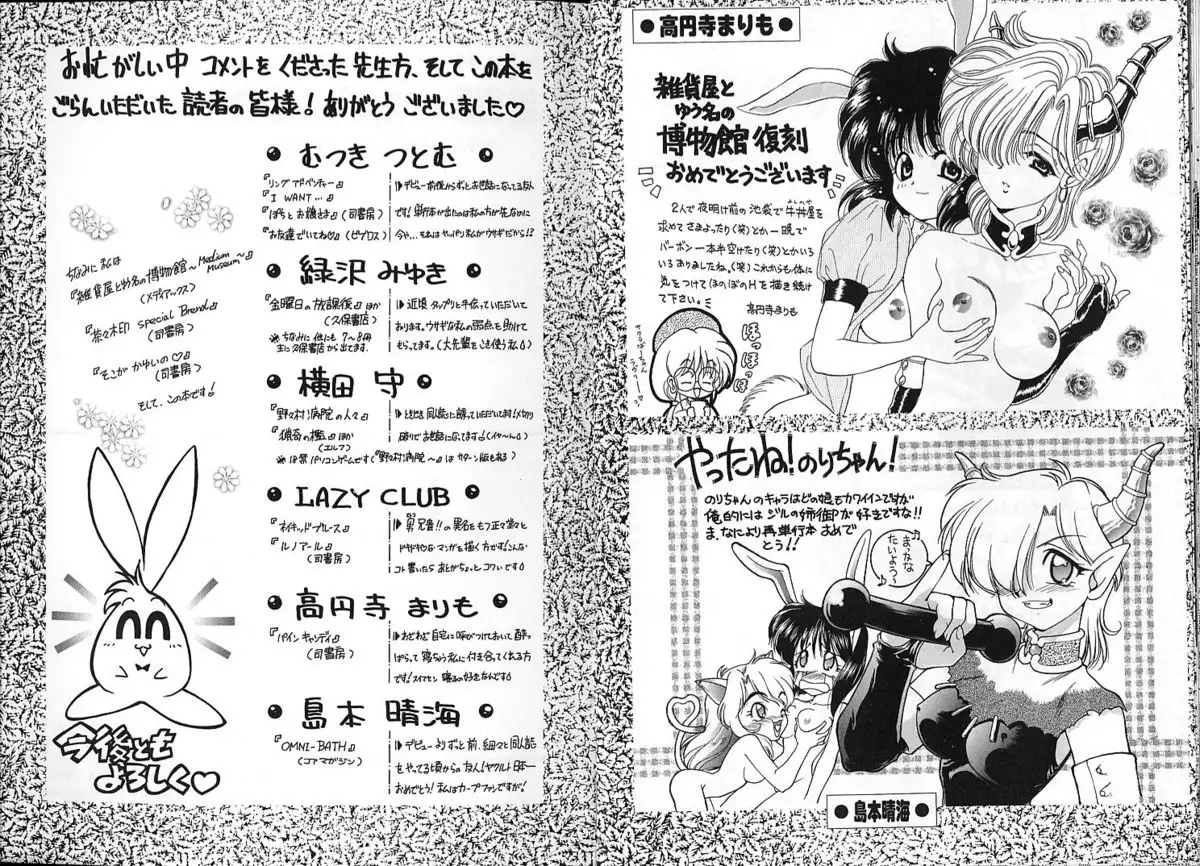 ●高円寺まりも●
雑貨屋と
ゆう名の
博物館復刻
おめでとうございます
2人で夜明け前の池袋で牛丼屋を
求めてさまよったり(笑)とか一晩で
バーボン一本半空けたり(笑)とかいろ
いろありましたね、(笑)これからも体に
気をつけてほのぼのHを描き続け
て下さい。
高円寺まりも
ほっほっほっ
やったね!のりちゃん!
のりちゃんのキャラはどの娘もカワイインですが
俺的にはジルの姉御が好きですな!!
ま、なにより再単行本おめで
とう!!
まっなな
たいよう?♪
●島本晴海●
お忙がしい中 コメントを くださった 先生方、そして この本を
ごらんいただいた 読者の皆様! ありがとう ございました♡
● むつき つとむ ●
『リングアドベンチャー』
『I WANT…』
『ぽちとお嬢さま』(司書房)
『お友達でいてね♡』(ビブロス)
▷デビュー前後からずっとお世話になってる友人
です!単行本が出たのは私の方が先なのに
今や…それはヤッパリ私がウサギだから!?
● 緑沢 みゆき ●
『金曜日の放課後』ほか
(久保書店)
※ちなみに他にも7〜8冊
主に久保書店から出てます.
▷近頃タップリと手伝っていただいて
おります。ウサギな私の弱点を助けて
もらってます。(大先輩をこき使う私)
● 横田 守 ●
『野々村病院の人々』
『猟奇の檻』ほか
(エルフ)
※18禁パソコンゲームです(『野々村病院〜』はサターン版もある)
▷ときどき同人誌に誘っていただいてます!メ切り
破りでお世話になってます〜(イヤ〜ん)
● LAZY CLUB ●
『ネイキッドブルース』
『ルノアール』
(司書房)
▷男兄貴!!の異名をもつ正々堂々と
ドギドギなマンガを描く方です!こんな
コト書いたらあとがちょっとコワいです
● 高円寺 まりも ●
『パインキャンディ』
(司書房)
▷わざわざ自宅に呼びつけておいて、酔っ
ぱらって寝ちゃう私に付き合ってくれる方
です!スイマセン 寝るの好きなんです
● 島本 晴海 ●
『OMNI-BATH』
(コアマガジン)
▷デビューよりずっと前、細々と同人誌
をやってる頃からの友人!ヤクルト日本一
おめでとう!私はカープファンですが!
ちなみに私は
『雑貨屋とゆう名の博物館〜Medium Museum〜』
(メディアックス)
『茶々木印 Special Brend』
(司書房)
『そこが かゆいの♡』
(司書房)
そして、この本です!
今後とも
よろしく♡